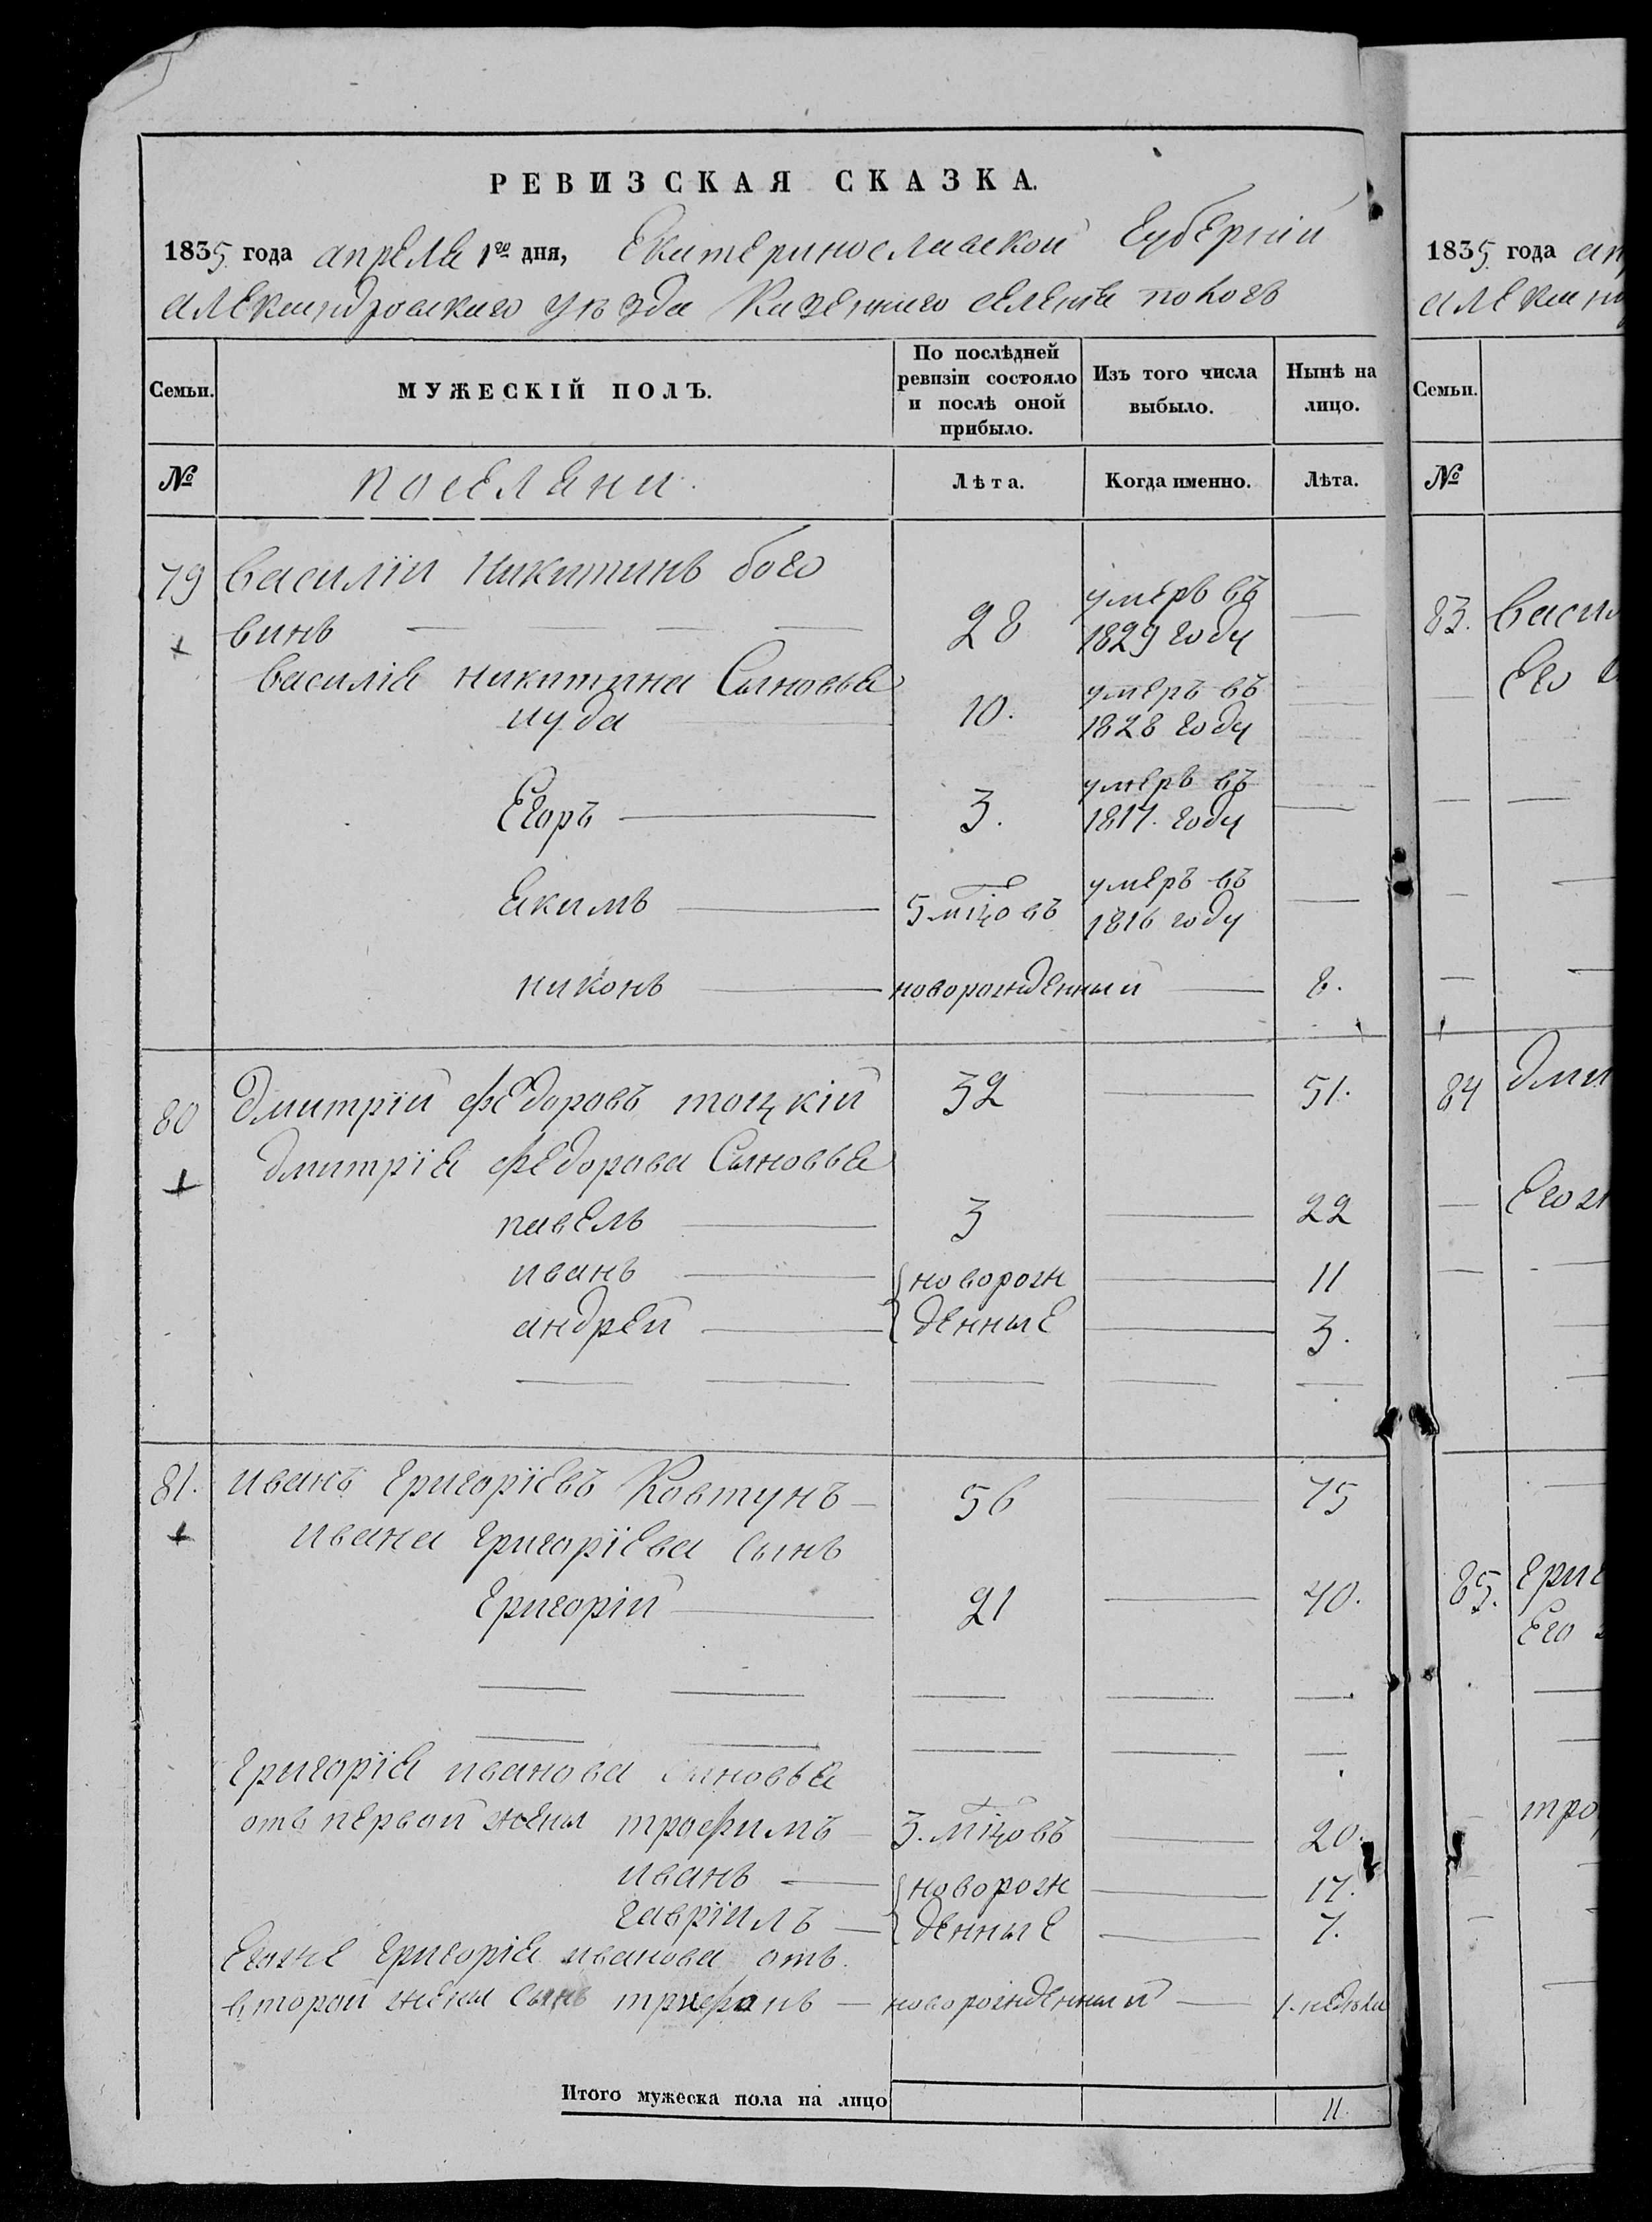 РЕВИЗСКАЯ СКАЗКА.
1835 года апреля 1го дня, Екатеринославской Губернии
александровского уезда Казенного селения покогъ
Семьи. МУЖЕСКІЙ ПОЛЪ. По послѣдней ревизіи состояло и послѣ оной прибыло. Изъ того числа выбыло. Нынѣ на лицо.
№ поселяни. Лѣта. Когда именно. Лѣта.
79 василіи никитинъ бого
винъ — 28 умеръ въ 1829 году —
василія никитина Сыновья
иуда — 10. умеръ въ 1828 году —
Егоръ — 3. умеръ въ 1817. году —
якимъ — 5 мцовъ умеръ въ 1816 году —
никонъ — новорожденныи — 8.
80 Дмитрїй федоровъ тоцкїй 32 — 51.
Дмитрїя федорова Сыновья
павелъ — 3 — 22
иванъ — новорож — 11
андрей — денные — 3.
81. иванъ григорїевъ Ковтунъ — 56 — 75
ивана григорїева сынъ
григорїй — 21 — 40.
григорїя иванова сыновья
отъ первой жены трофимъ — 3. мцовъ — 20.
иванъ — новорож — 17.
гаврїилъ — денные — 7.
Егоже григорїя иванова отъ
второй жены сынъ трифонъ — новорожденный — 1. недѣли
Итого мужеска пола на лицо 11.
1835 года ап
александ
Семьи.
№
83. васи
Его
84 дми
Егож
85. григ
Его
тро